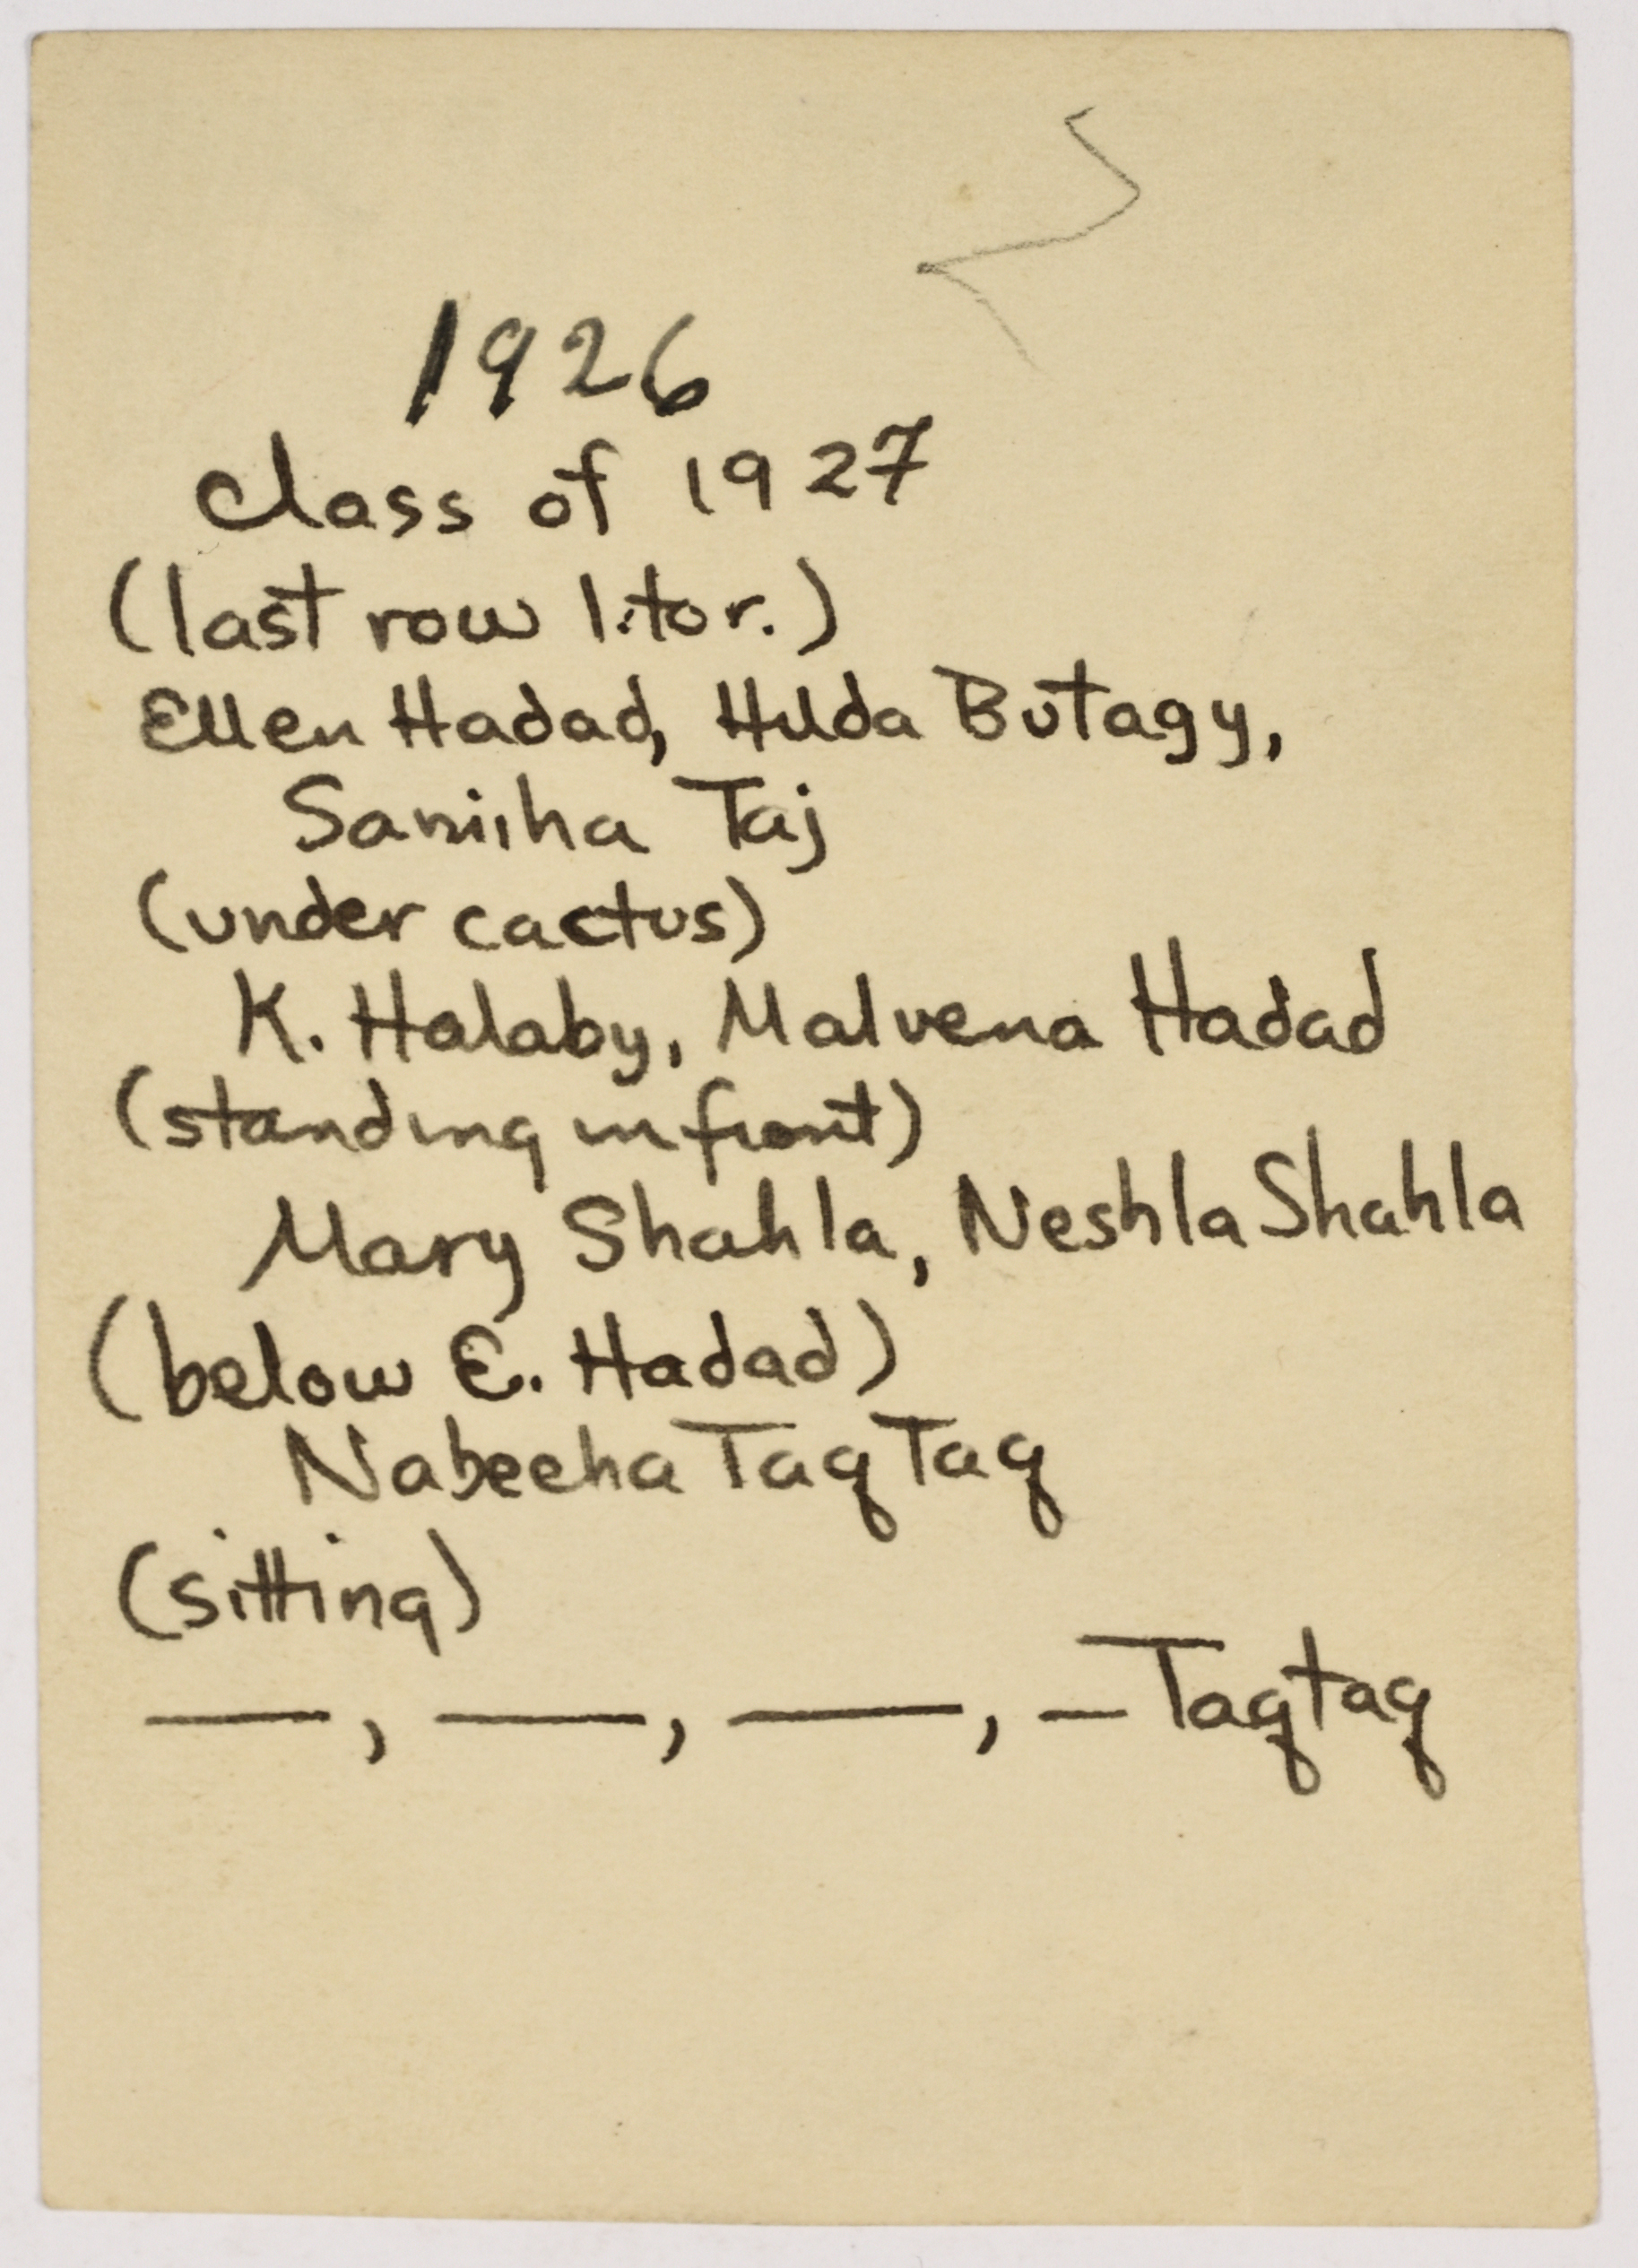 1926
Class of 1927
(last row l. to r.)
Ellen Hadad, Hilda Butagy,
Samiha Taj
(under cactus)
K. Halaby, Malvena Hadad
(standing in front)
Mary Shahla, Neshla Shahla
(below E. Hadad)
Nabeeha TaqTaq
(sitting)
—, —, —, — Taqtaq